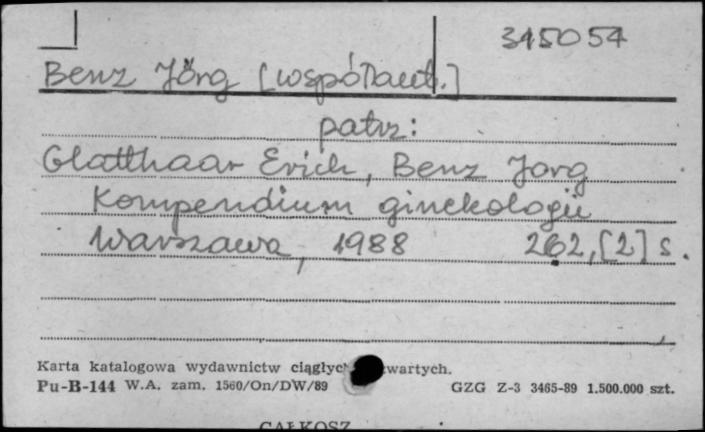 345054
Benz Jörg [współaut.]
patrz:
Glatthaar Erich, Benz Jorg
Kompendium ginekologii
Warszawa, 1988 262, [2] s.
Karta katalogowa wydawnictw ciągłych wartych.
Pu-B-144 W.A. zam. 1560/On/DW/89 GZG Z-3 3465-89 1.500.000 szt.